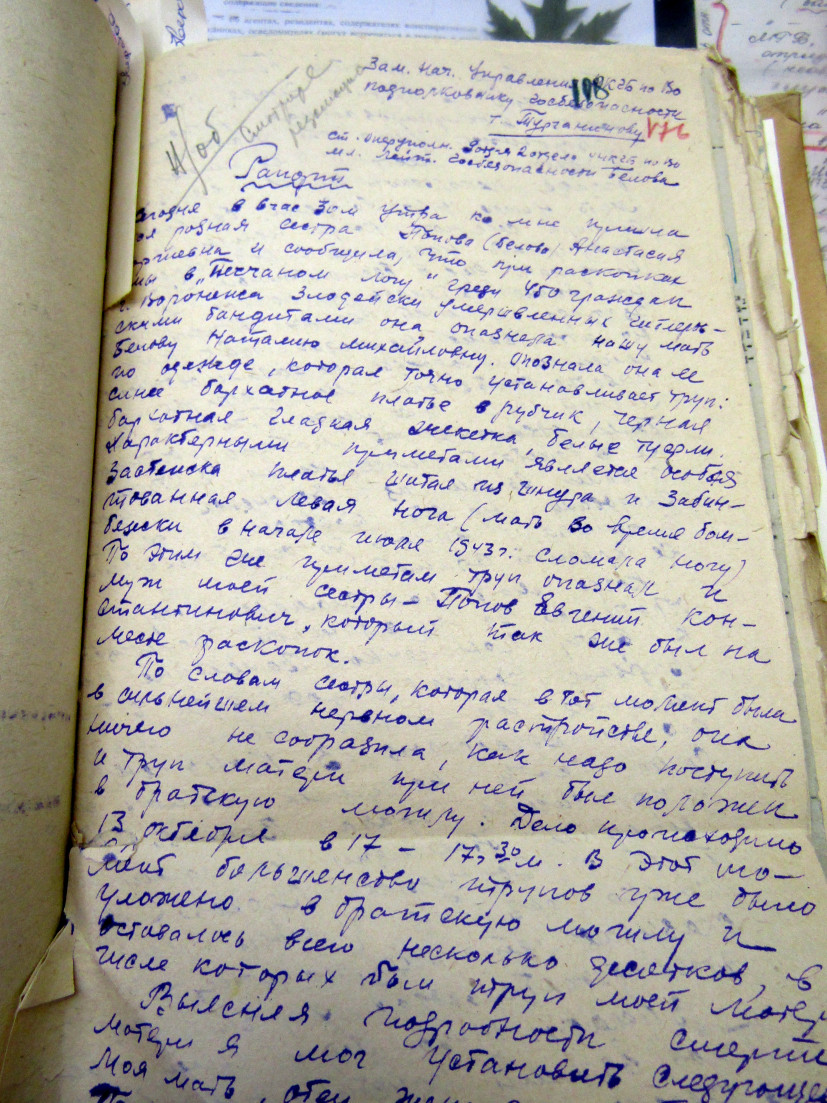 содержащие сведения
Зам. Нач. Управления НКГБ по ВО
подполковнику госбезопасности
т. Турчанинову
108
176
Смотрите
ст. оперуполн. 2 отдела УНКГБ по ВО
мл. лейт. госбезопасности Белова
Рапорт
Сегодня в 8 час 30 м утра ко мне пришла
моя родная сестра Попова (Белова) Анастасия
и сообщила, что при раскопках
ямы в "Песчаном логу" среди 450 граждан
г. Воронежа злодейски умерщвленных гитлеров-
скими бандитами она опознала нашу мать
Белову Наталию Михайловну. Опознала она ее
по одежде, которая точно устанавливает труп:
синее бархатное платье в рубчик, черная
бархатная гладкая жекетка, белые туфли.
Характерными приметами является особая
застежка платья шитая из шнура и забин-
тованная левая нога (мать во время бом-
бежки в начале июля 1943 г. сломала ногу)
По этим же приметам труп опознал и
муж моей сестры – Попов Евгений Кон-
стантинович, который так же был на
месте раскопок.
По словам сестры, которая в тот момент была
в сильнейшем нервном растройстве, она
ничего не сообразила, как надо поступить
и труп матери при ней был положен
в братскую могилу. Дело происходило
13 октября в 17 – 17 ч 30 м. В этот мо-
мент большенство трупов уже было
уложено в братскую могилу и
оставалось всего несколько десятков, в
числе которых был труп моей матери
Выясняя подробности смерти
матери я мог установить следующее
Моя мать, отец